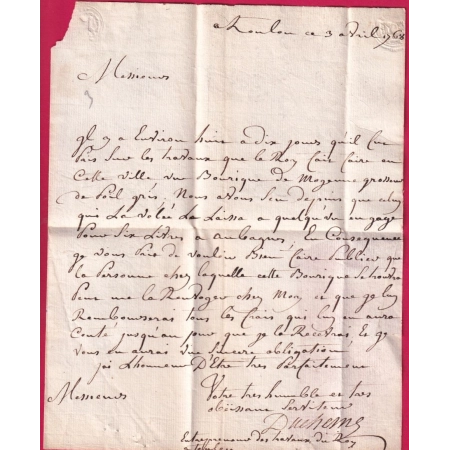 a Toulon ce 3 avril 1768
Messieurs
jl y a Environ huit a dix jours quil fut
Pris Sur les travaux que le Roy fait faire en
Cette Ville une Bourique de Moyenne grosseur
de Poil gris, Nous avons Seu depuis que celuy
qui La volée La Laissa a quelqu'un en gage
Pour Six Livres a aubagne, En Consequence
je vous Prie de vouloir Bien faire Publier que
la Personne chez laquelle cette Bourique Se trouve
Peut me la Renvoyer chez Moy, ce que je luy
Rembourserai tous les fraix que luy en aura
Couté jusqu'au jour que je la Recevrai Et je
vous en aurai Une Sincere obligation
jai Lhonneur D'Etre tres Parfaitement
Messieurs
Votre tres humble et tres
obeissant Serviteur
Duchemin
Entrepreneur des travaux du Roy
a Toulon